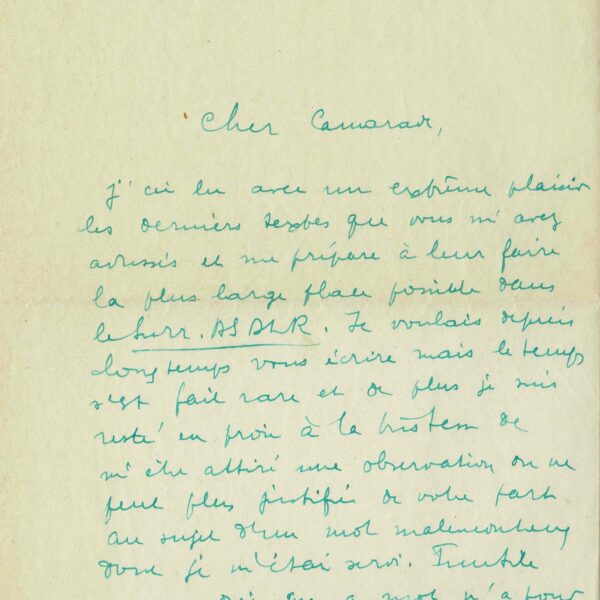 Cher Camarade,
j'ai lu avec un extrême plaisir
les derniers textes que vous m'avez
adressés et me prépare à leur faire
la plus large place possible dans
le Surr. ASDLR. Je voulais depuis
longtemps vous écrire mais le temps
s'est fait rare et de plus je suis
resté en proie à la tristesse de
m'être attiré une observation on ne
peut plus justifiée de votre part
au sujet d'un mot malencontreux
dont je m'étais servi. Inutile
que ce mot n'a pour